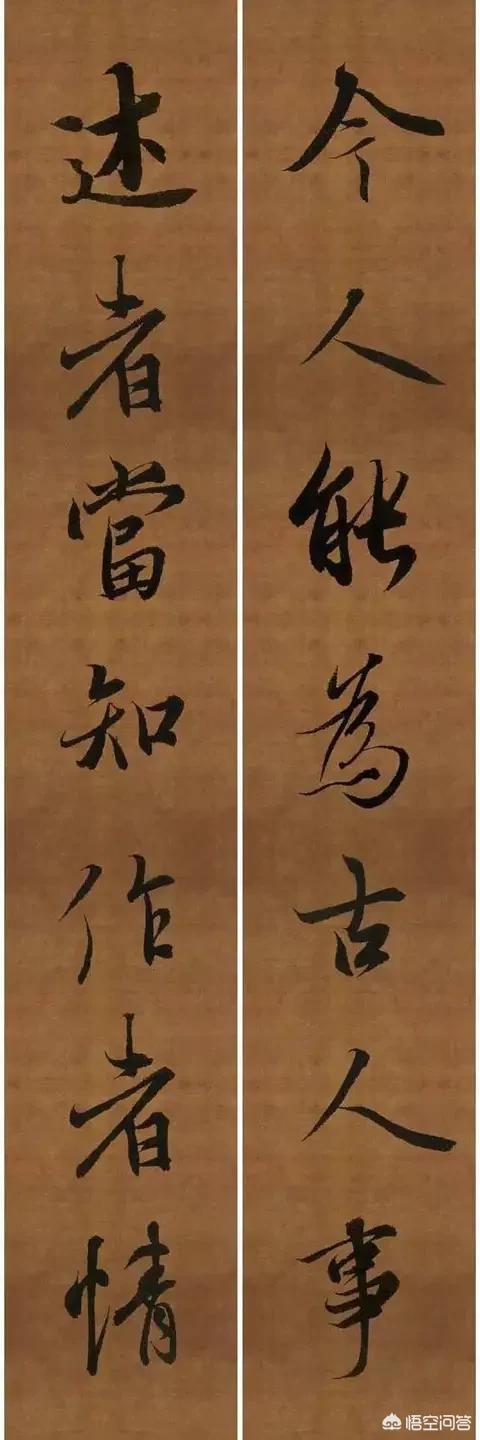 今人能為古人事
述者當知作者情
悟空问答